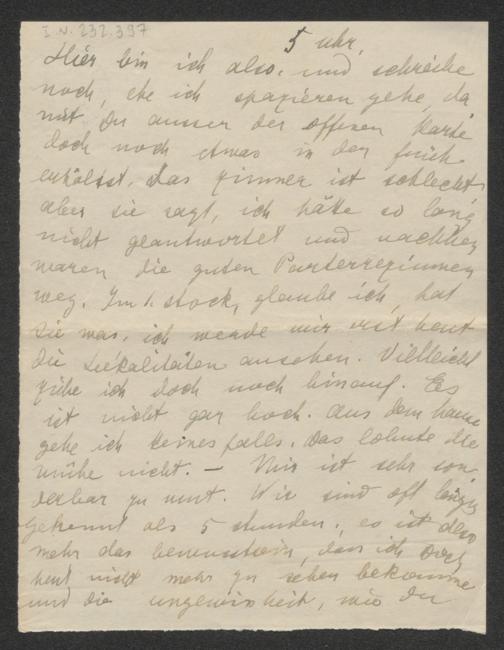 I. N. 232.397
5 uhr.
Hier bin ich also. und schreibe
noch, ehe ich spazieren gehe, da
mit Du ausser der offenen Karte
doch noch etwas in der früh
erhältst. Das zimmer ist schlecht
aber sie sagt, ich hätte so lang
nicht geantwortet und nachher
waren die guten Parterrezimmer
weg. Im 1. stock, glaube ich, hat
sie was. ich werde mir erst heut
die Lokalitäten ansehen. Vielleicht
ziehe ich doch noch hinauf. Es
ist nicht gar hoch. Aus dem hause
gehe ich keinesfalls. Das lohnte die
mühe nicht. — Mir ist sehr son
derbar zu mut. Wir sind oft länger
getrennt als 5 stunden, es ist also
mehr das bewusstsein, dass ich Dich
heut nicht mehr zu sehen bekomme
und die ungewissheit, wie Du